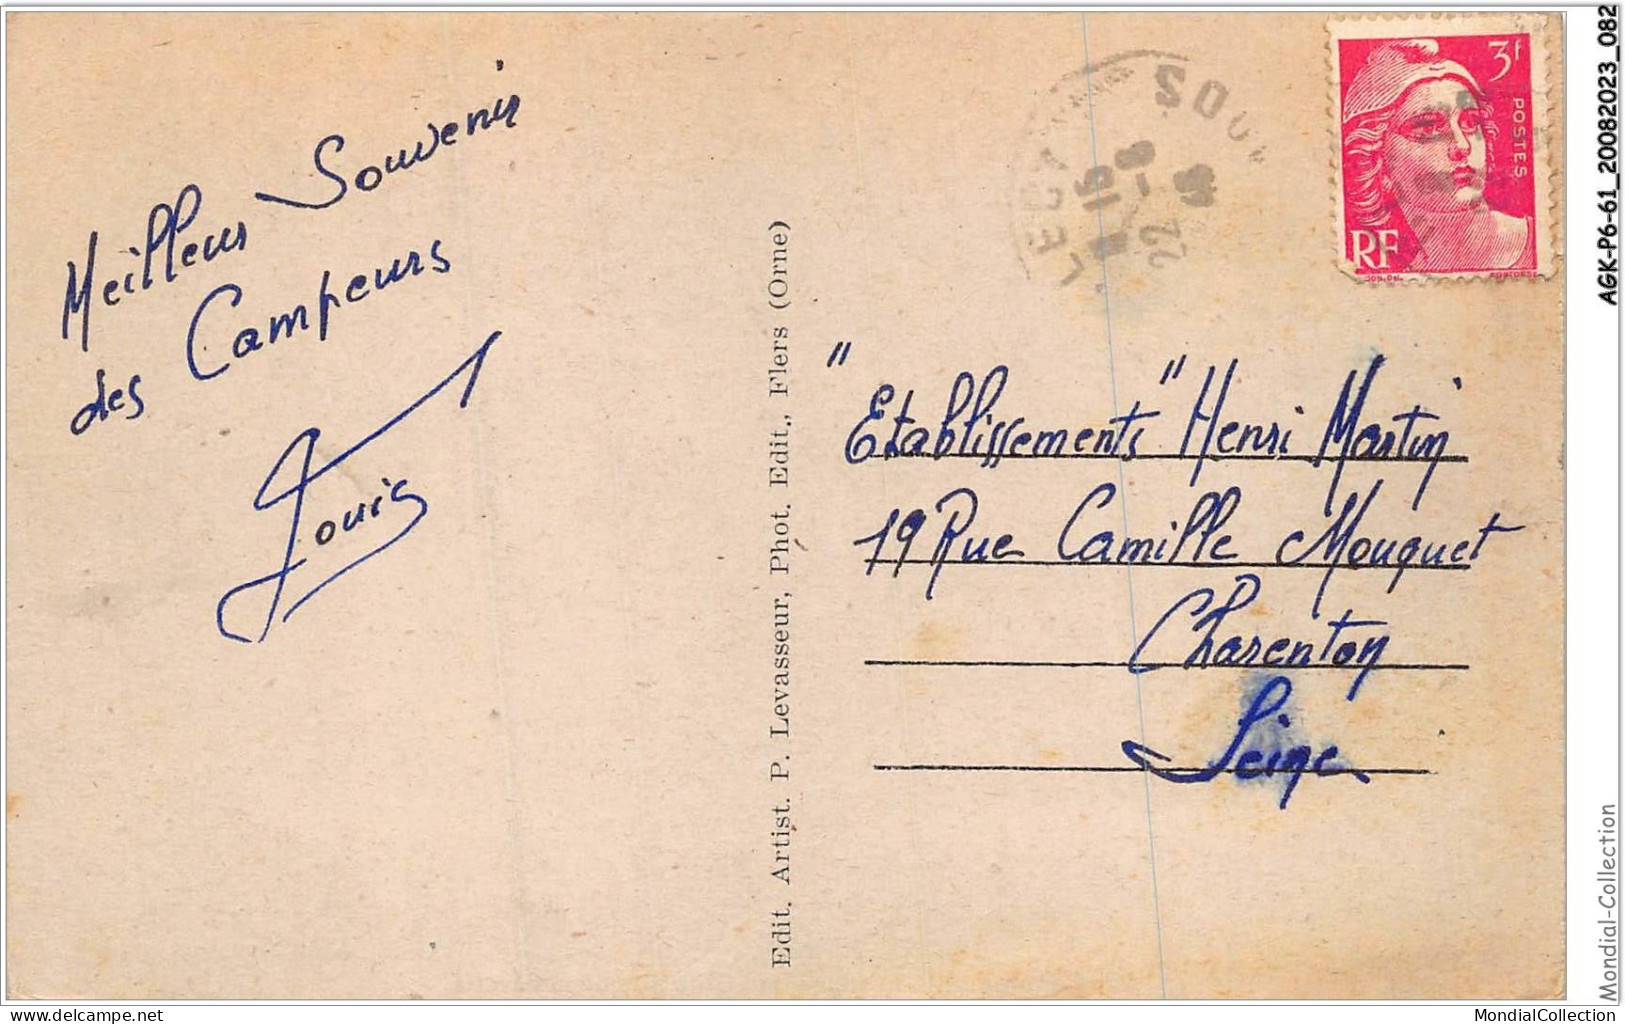 Meilleur Souvenir
des Campeurs
Louis
Edit. Artist. P. Levasseur, Phot. Edit., Flers (Orne)
3f
POSTES
RF
15
22-8
"Etablissements" Henri Martin
19 Rue Camille Mouquet
Charenton
Seine
AGK-P6-61_20082023_082
Mondial-Collection
www.delcampe.net
MondialCollection